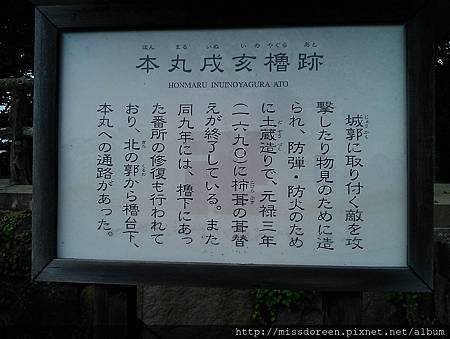 ほん まる いぬ い の やぐら あと
本丸戌亥櫓跡
HONMARU INUINOYAGURA ATO
城郭に取り付く敵を攻
撃したり物見のために造
られ、防弾・防火のため
に土蔵造りで、元禄三年
(一六九〇)に柿葺の葺替
えが終了している。また
同九年には、櫓下にあっ
た番所の修復も行われて
おり、北の郭から櫓台下、
本丸への通路があった。
http://missdoreen.pixnet.net/album